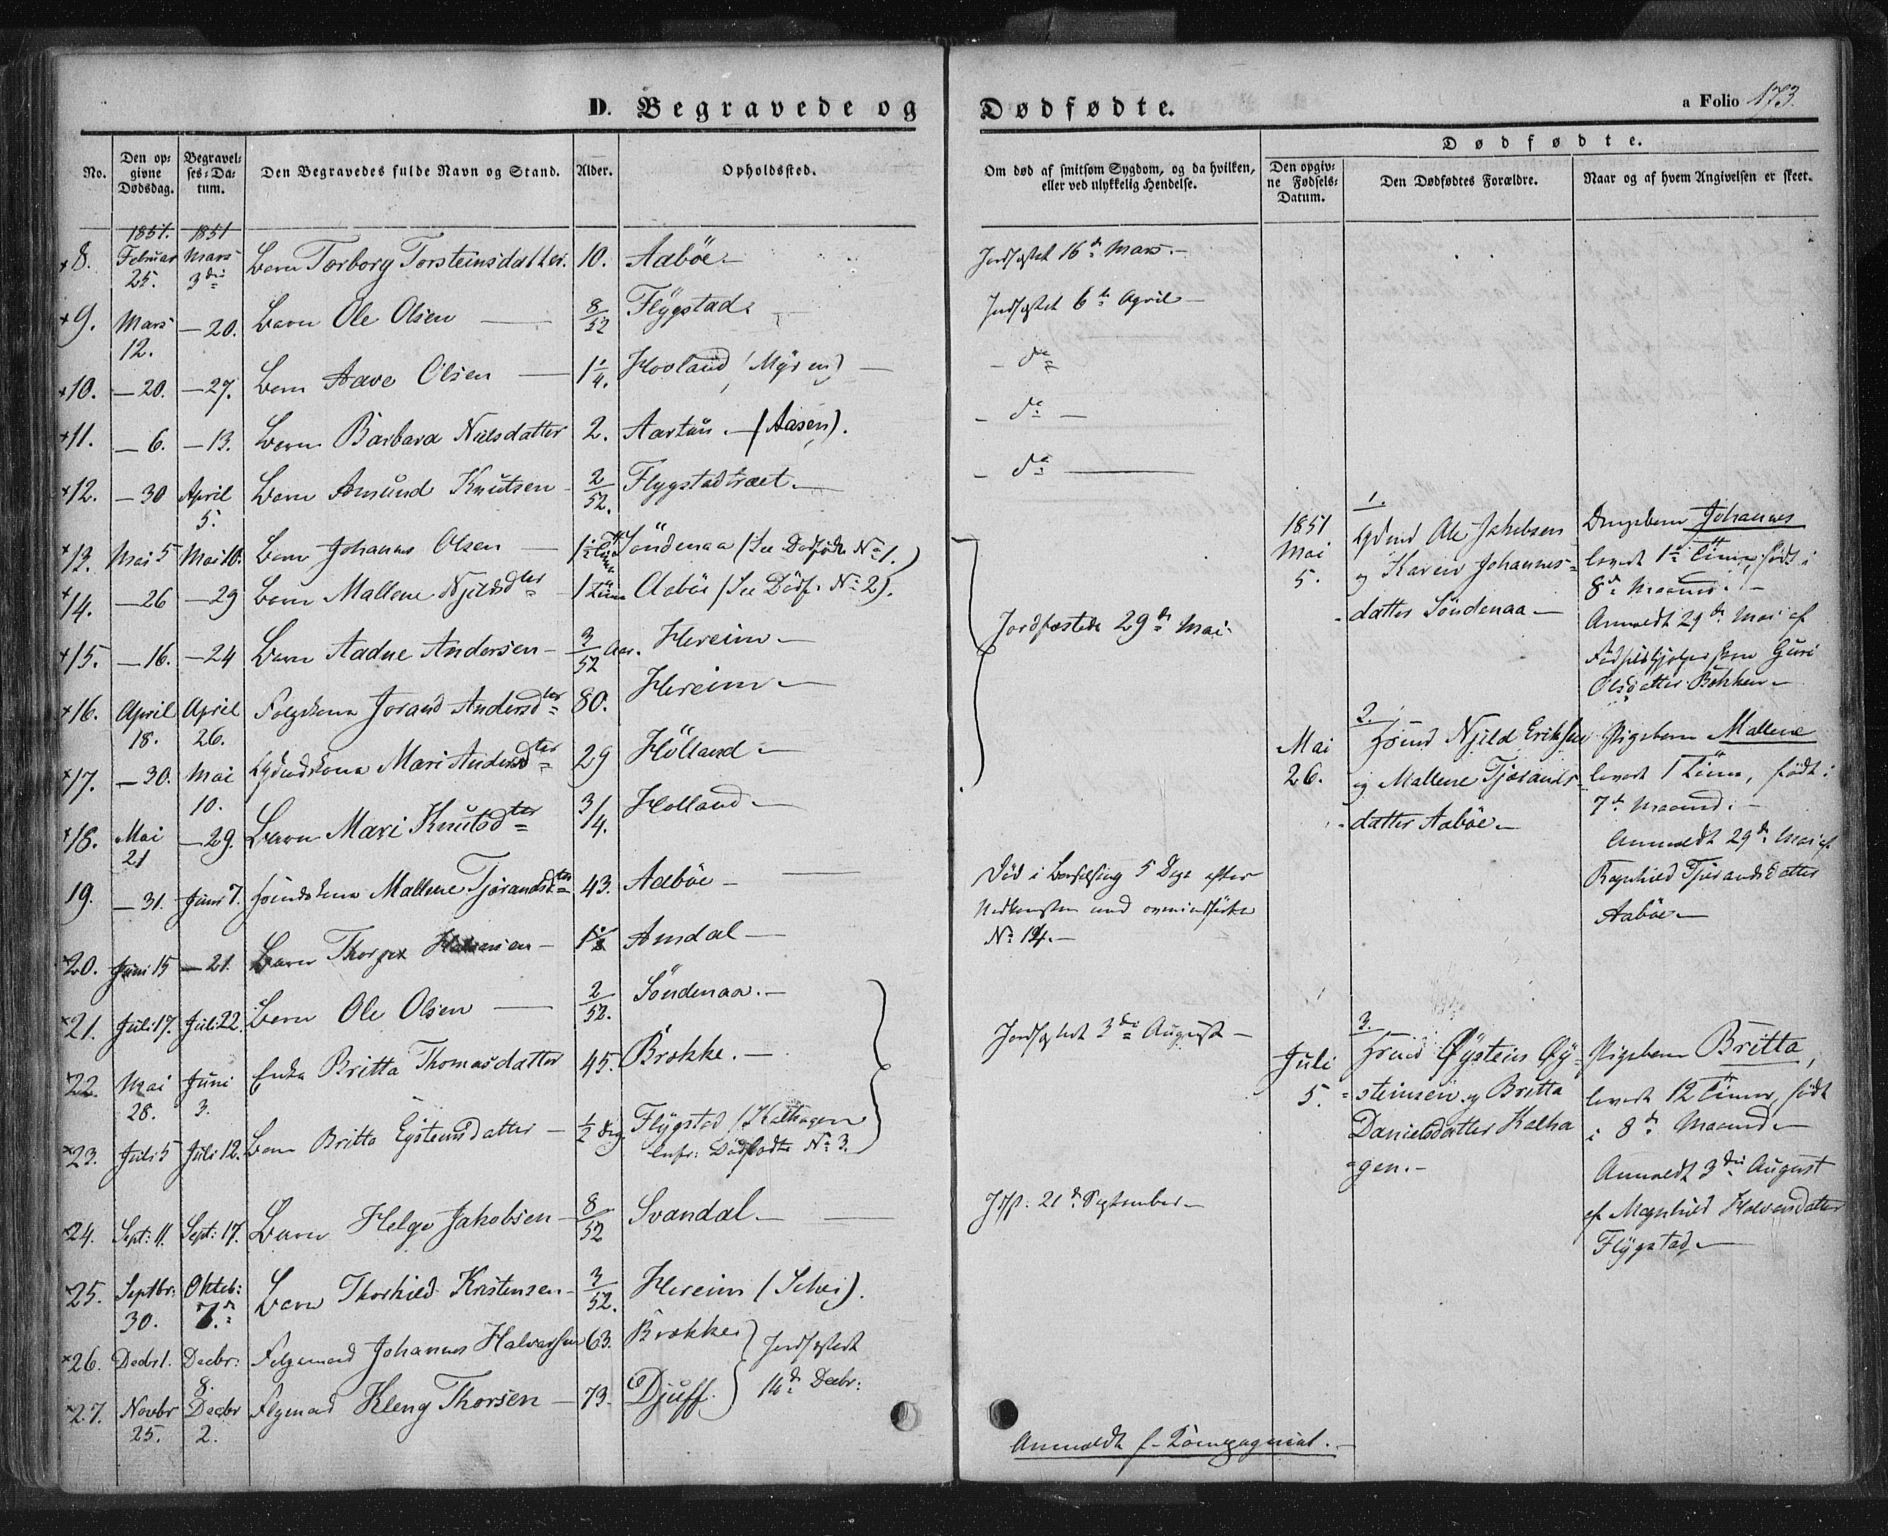 D. Begravede og Dødfødte.
a Folio 173.
No.
Den op-
givne
Dødsdag.
Begravel-
ses-Da-
tum.
Den Begravedes fulde Navn og Stand.
Alder.
Opholdssted.
Om død af smitsom Sygdom, og da hvilken,
eller ved ulykkelig Hendelse.
Dødfødte.
Den opgiv-
ne Fødsels-
Datum.
Den Dødfødtes Forældre.
Naar og af hvem Angivelsen er skeet.
1851. 1851
8. Februar 25. Mars 3die Barn Torborg Torsteinsdatter. 10. Aaböe Jordfæstet 16de Mars.
9. Mars 12. — 20. Barn Ole Olsen — 8/52 Flÿgstad. Jordfæstet 6te April
10. — 20. — 27. Barn Aave Olsen — 1 1/4. Hovland (Myren) — do
11. — 6. — 13. Barn Barbara Nielsdatter 2. Aartun — (Aasen). — do —
12. — 30 April 5. Barn Amund Knutsen 2/52. Flygstadtræet. — do —
13. Mai 5 Mai 10. Barn Johannes Olsen — Söndenaa (See Dödfödte No 1.)
14. — 26 — 29 Barn Mallene Njeldsdter 1 Time Aaböe (See Dödf. No 2).
15. — 16. — 24 Barn Aadne Andersen — 3/52 Aar. Hereim —
16. April 18. April 26. Folgekona Jorand Andersdter 80. Hereim —
Jordfæstede 29de Mai
17. — 30. Mai 10. Mari Andersdter 29 Hölland —
18. Mai 21 — 29. Barn Mari Knutsdter 3/4. Holland —
19. — 31. Juni 7. Mallene Tjörandsdter 43. Aaböe — Död i Barselseng 5 Dage efter
Nedkomsten med
No 14. —
20. Juni 15 — 21. Barn — Amdal —
21. Juli 17. Juli 22. Barn Ole Olsen — 2/52. Söndenaa. —
22. Mai 28. Juni 3. Enke Britta Thomasdatter 45. Brokke. —
23. Juli 5 Juli 12. Barn Britta Eysteinsdatter — 1/2 Dag Flÿgstad (Kalhagen
Dödfödte No 3.
Jordfæstet 3die August —
24. Sept: 11. Sept: 17. Barn Helge Jakobsen — 8/52 Svandal. — Jdf. 21de September —
25. Septbr: 30. Oktob: 7de Barn Thorkild Kristensen 3/52. Hereim (Schei).
26. Decbr 1. Decbr: 8. Folgemand Johannes Halvorsen 63. Brokke } Jordfæstet
27. Novbr 25. Decbr 2. Folgemand Kleng Thorsen — 73. Djuff. } 14de Decbr:
1.
1851
Mai
5.
Ole Jakobsen
og Karen Johannes-
datter Söndenaa —
Drengebarn Johannes
levede 1 Time, födt i
8de Maaned. —
Anmeldt 29de Mai af
Guri
Olsdatter Bökken —
2.
Mai
26.
Njeld Eriksen
og Mallene Tjörands-
datter Aaböe —
Pigebarn Mallene
levede 1 Time, födt i
7de Maaned. —
Anmeldt 29de Mai af
Ragnhild Tjörandsdatter
Aaböe —
3.
Juli
5.
Øystein Øy-
steinsen og Britta
Danielsdatter Kalha
gen. —
Pigebarn Britta,
levede 12 Timer, födt
i 8de Maaned —
Anmeldt 3die August
af Magnhild Halvorsdatter
Flÿgstad —
Anmeldt f.